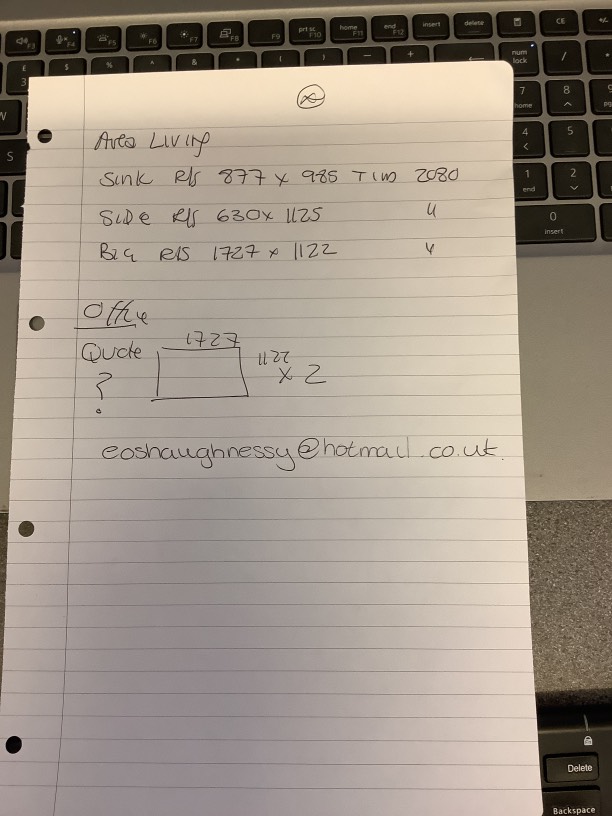 Area Living
Sink R/S 877 x 985 TIM 2080
Side R/S 630 x 1125 "
Big R/S 1727 x 1122 "
Office
Quote 1727
? 1122
x 2
eoshaughnessy@hotmail.co.uk.
prt sc
home
end
insert
delete
F3
F4
F5
F6
F7
F8
F9
F10
F11
F12
CE
num
lock
£
3
$
%
^
&
*
(
)
-
+
/
W
S
7
home
8
4
5
1
end
2
0
insert
Delete
Backspace